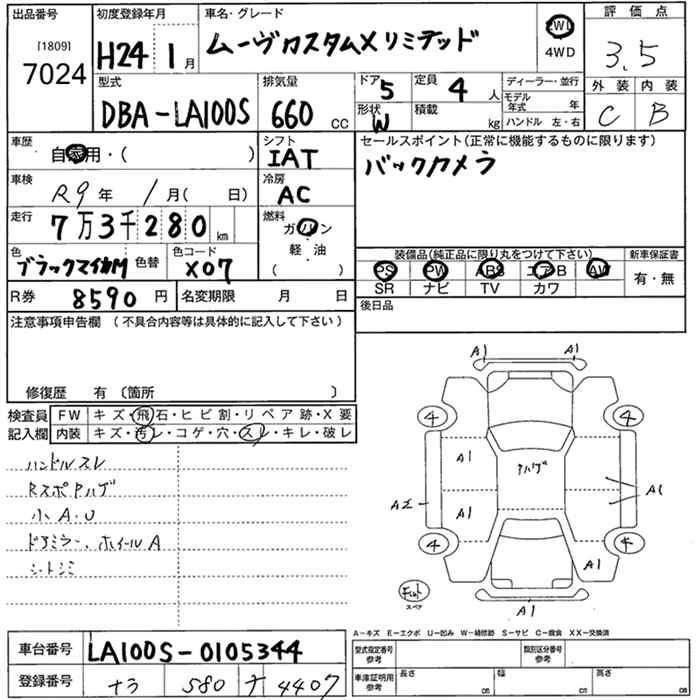 出品番号
[1809]
7024
初度登録年月
H24 1月
車名・グレード
ムーヴカスタムXリミテッド
2WD
4WD
評価点
3.5
外装 内装
C B
型式
DBA-LA100S
排気量
660 CC
ドア
5
形状
W
定員
4 人
積載
kg
ディーラー・並行
モデル年式 年
ハンドル 左・右
車歴
自家用・( )
シフト
IAT
セールスポイント(正常に機能するものに限ります)
バックカメラ
車検
R9年 1月( 日)
冷房
AC
走行
7万3千280km
燃料
ガソリン
軽・油
( )
色
ブラックマイカM
色替
色コード
X07
装備品(純正品に限り丸をつけて下さい)
PS PW ABS エアB AW
SR ナビ TV カワ
新車保証書
有・無
R券 8590円
名変期限 月 日
後日品
注意事項申告欄(不具合内容等は具体的に記入して下さい)
修復歴 有〔箇所 〕
検査員
記入欄
FW キズ・飛石・ヒビ割・リペア跡・X要
内装 キズ・汚レ・コゲ・穴・スレ・キレ・破レ
ハンドルスレ
RスポPハゲ
小A・U
ドアミラー、ホイールA
シートシミ
A1 A1
4 4
A1
Pハゲ
A2 A1 A1
4 4
A1
A1
スペア
A-キズ E-エクボ U-凹み W-補修跡 S-サビ C-腐食 XX-交換済
車台番号 LA100S-0105344
登録番号 ナラ 580 ナ 4407
型式指定番号
参考
類別区分番号
参考
車庫証明用
参考
長さ cm
幅 cm
高さ cm